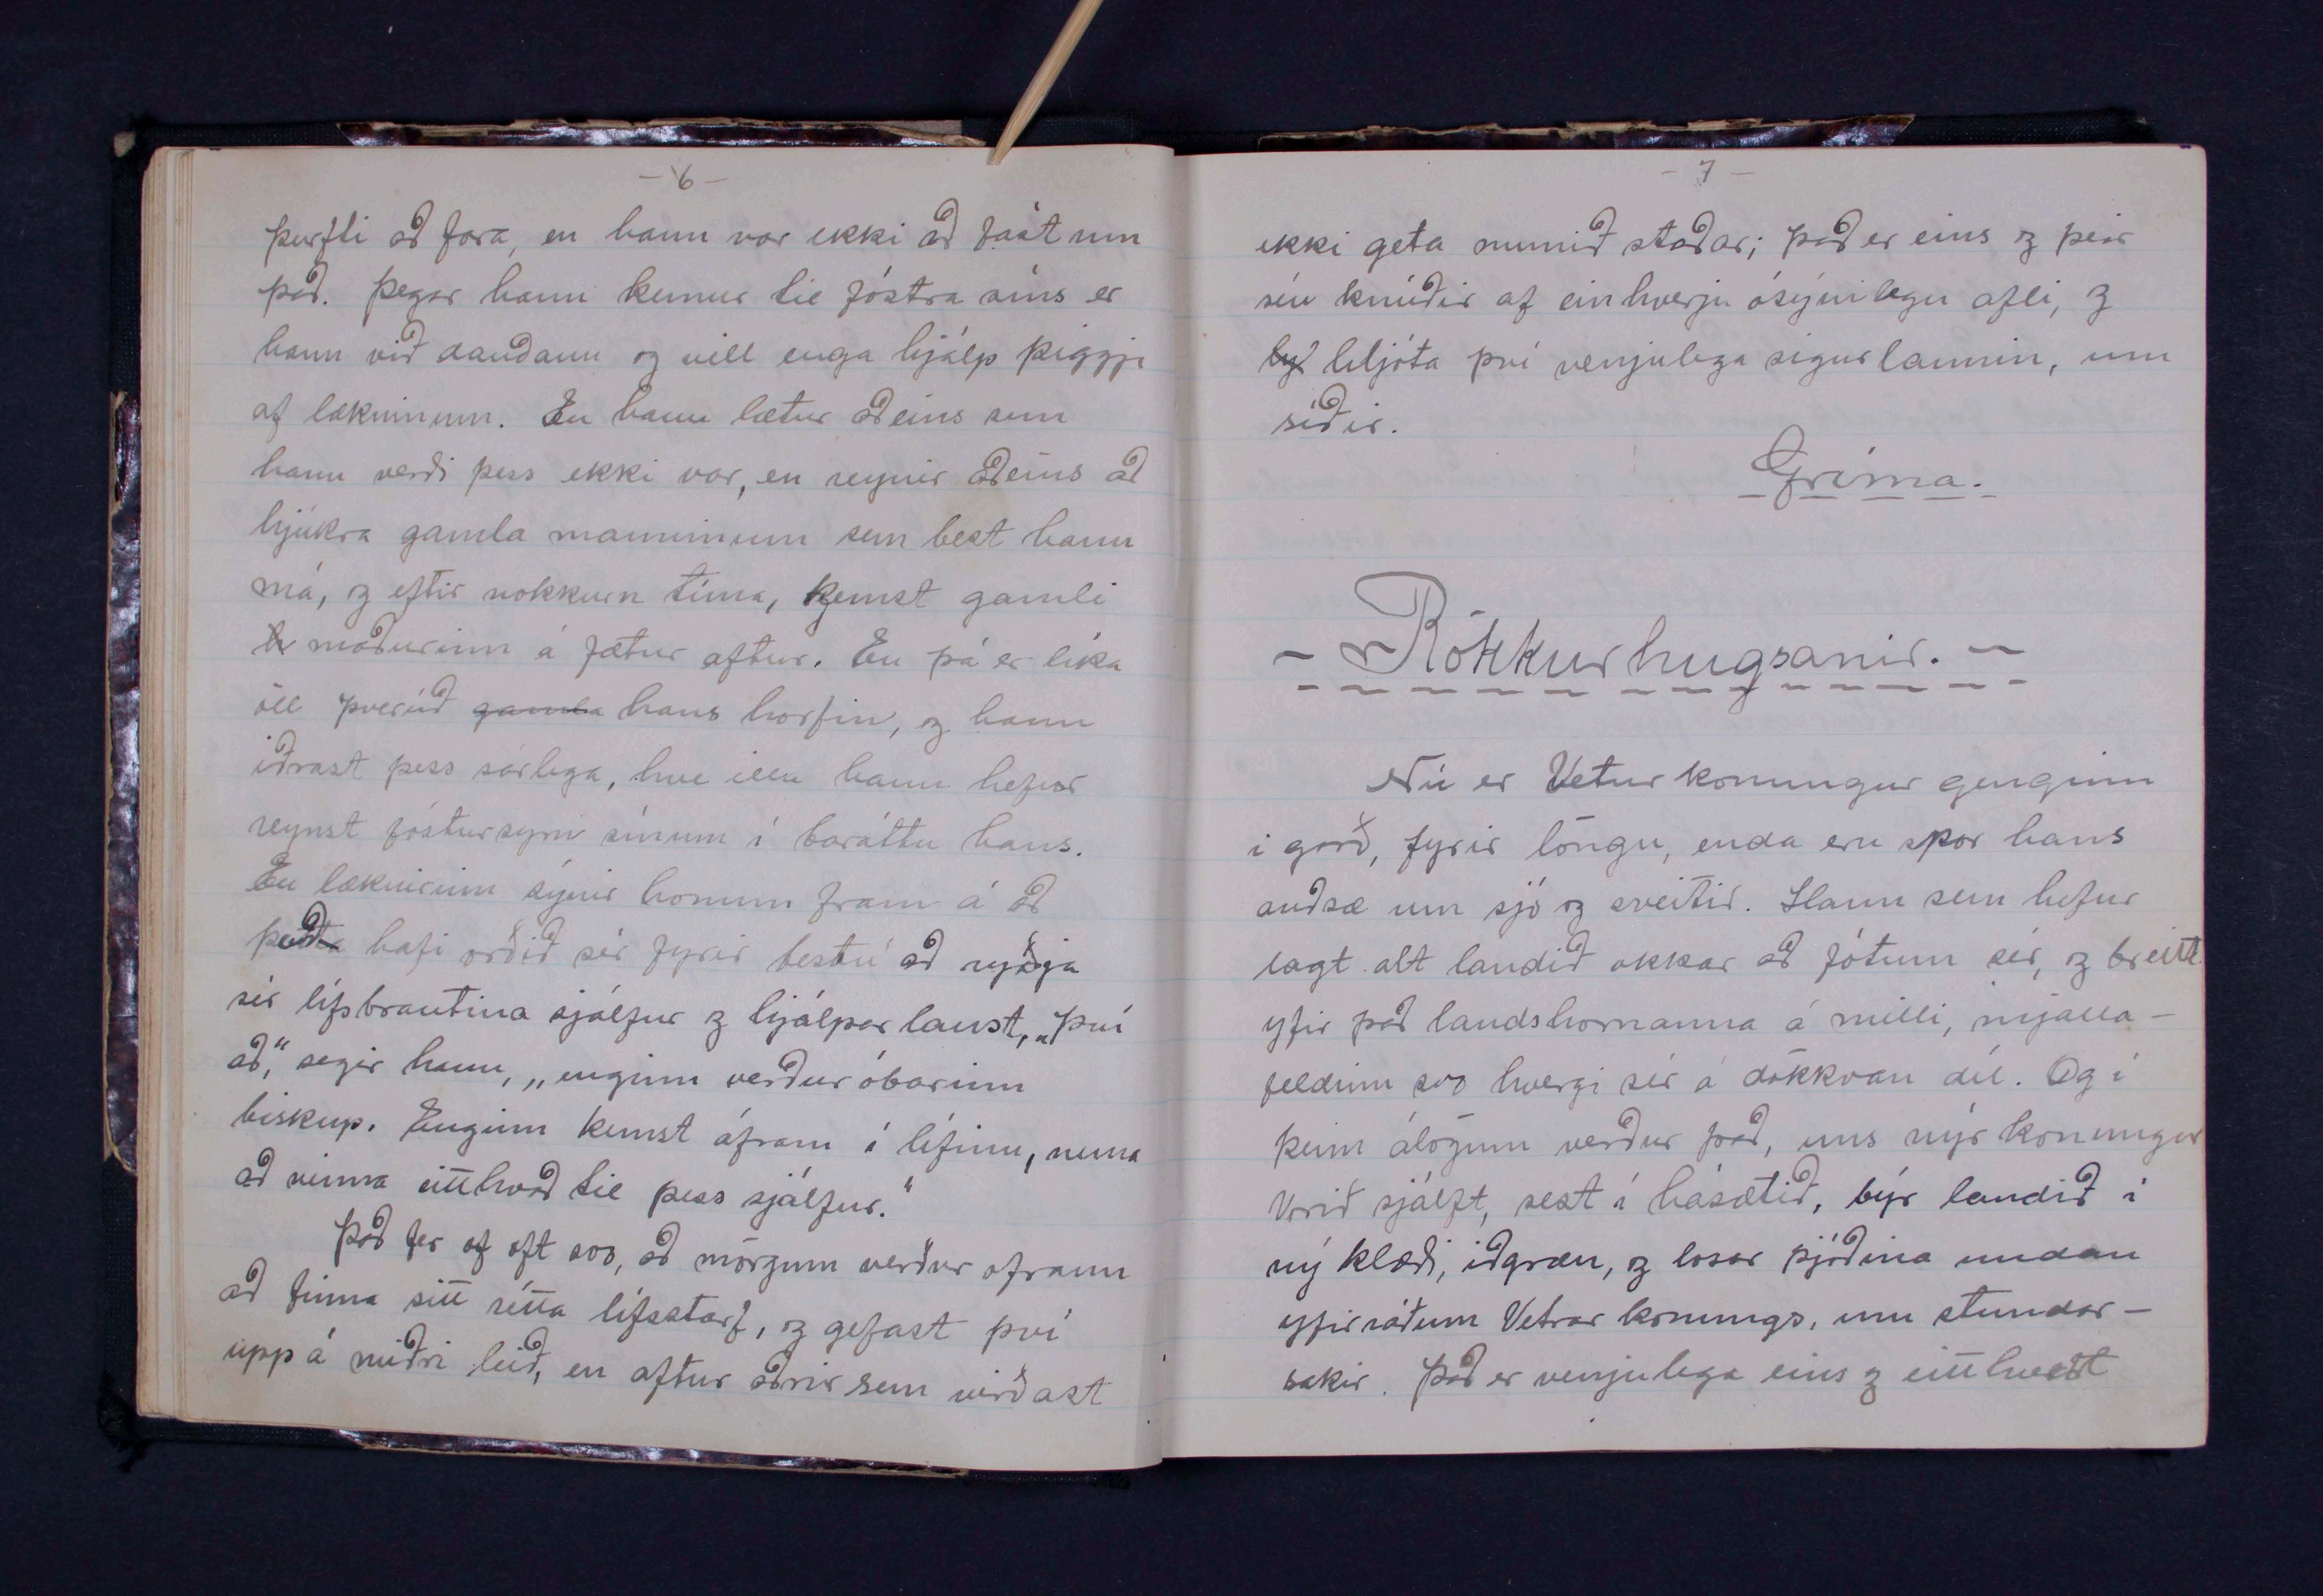 - 6 -
þurfti að fara, en hann var ekki að fást um
það. Þegar hann kemur til fóstra síns er
hann við dauðann og vill enga hjálp þiggja
af lækninum. En hann lætur aðeins sem
hann verði þess ekki var, en reynir aðeins að
hjúkra gamla manninum sem best hann
má, og eftir nokkurn tíma, kemst gamli
maðurinn á fætur aftur. En þá er líka
öll þverúð gamla hans horfin, og hann
iðrast þess sárlega, hve illa hann hefur
reynst fóstursyni sínum í baráttu hans.
En læknirinn sýnir honum fram á að
þetta hafi orðið sér fyrir bestu að ryðja
sér lífsbrautina sjálfur og hjálparlaust, „því
að," segir hann, „enginn verður óbarinn
biskup. Enginn kemst áfram í lífinu, nema
að vinna eitthvað til þess sjálfur."
Það fer of oft svo, að mörgum verður ofraun
að finna sitt rétta lífsstarf, og gefast því
upp á miðri leið, en aftur aðrir sem virðast
- 7 -
ekki geta numið staðar; það er eins og þeir
séu knúðir af einhverju ósýnilegu afli, og
hljóta því venjulega sigurlaunin, um
síðir.
Gríma.
- Rökkurhugsanir. -
Nú er Vetur konungur genginn
í garð, fyrir löngu, enda eru spor hans
auðsæ um sjó og sveitir. Hann sem hefur
lagt alt landið okkar að fótum sér, og breitt
yfir það landshornanna á milli, mjalla-
feldinn svo hvergi sér á dökkvan díl. Og í
þeim álögum verður það, uns nýr konungur
Vorið sjálft, sest í hásætið, býr landið í
ný klæði, iðgræn, og losar þjóðina undan
yfirráðum Vetrar konungs, um stundar-
sakir. Það er venjulega eins og eitthvert